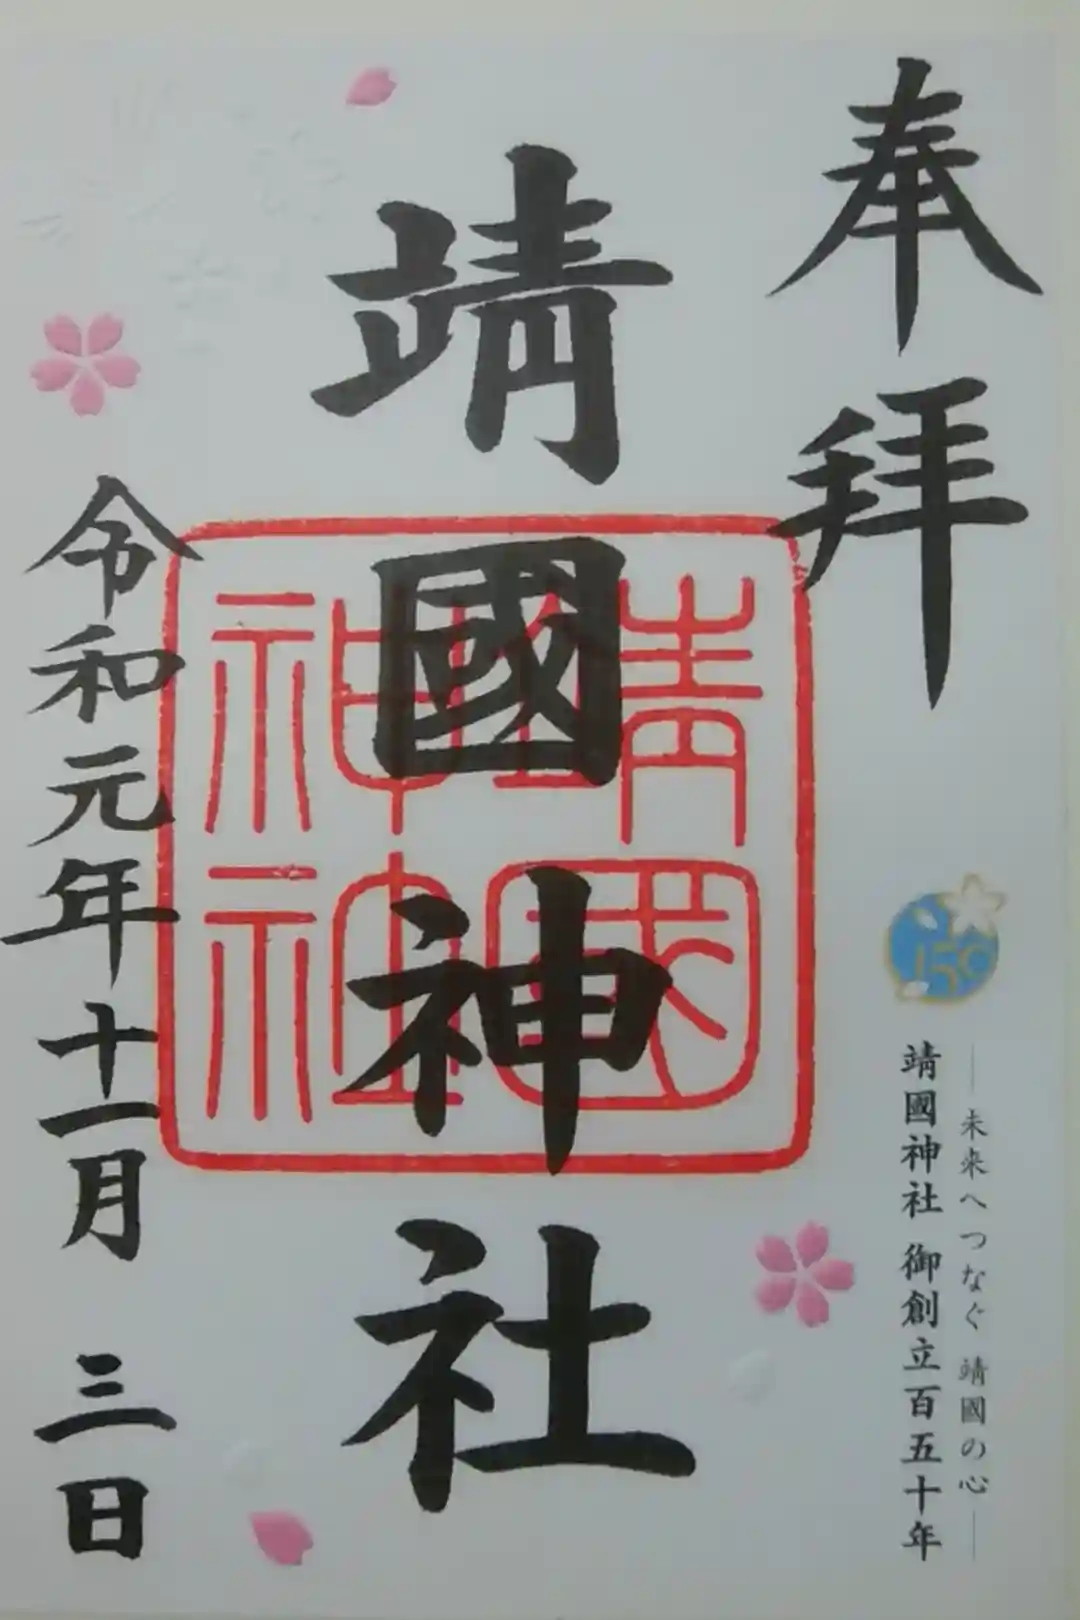 奉拝
150
―未来へつなぐ 靖國の心―
靖國神社 御創立百五十年
靖國神社
靖國神社
令和元年十一月 三日